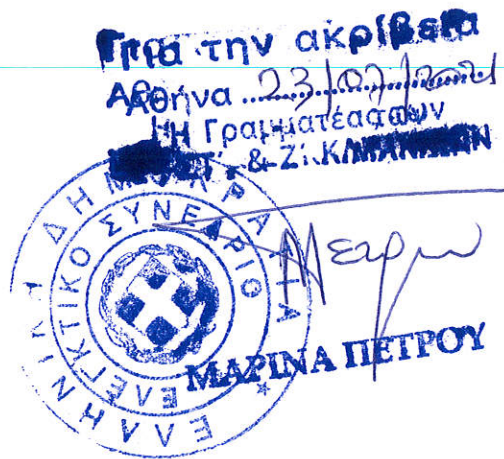 Για την ακρίβεια
Αθήνα 23/07/2021
Η Γραμματέας των
& Ζ΄ ΚΛΙΜΑΚΙΩΝ
ΕΛΛΗΝΙΚΗ ΔΗΜΟΚΡΑΤΙΑ
ΕΛΕΓΚΤΙΚΟ ΣΥΝΕΔΡΙΟ
ΜΑΡΙΝΑ ΠΕΤΡΟΥ